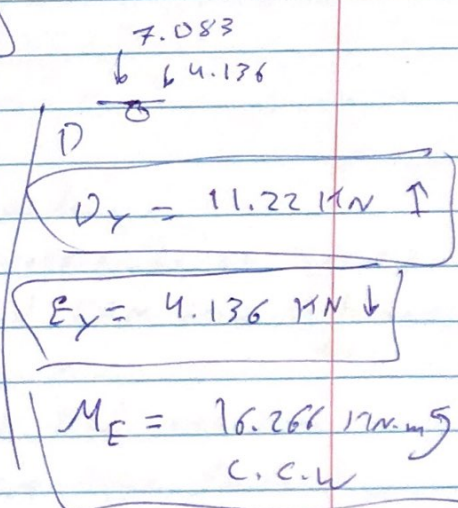 7.083
↓ ↓ 4.136
D
Dy = 11.22 KN ↑
Ey = 4.136 KN ↓
ME = 16.266 KN.m ↺
C.C.W